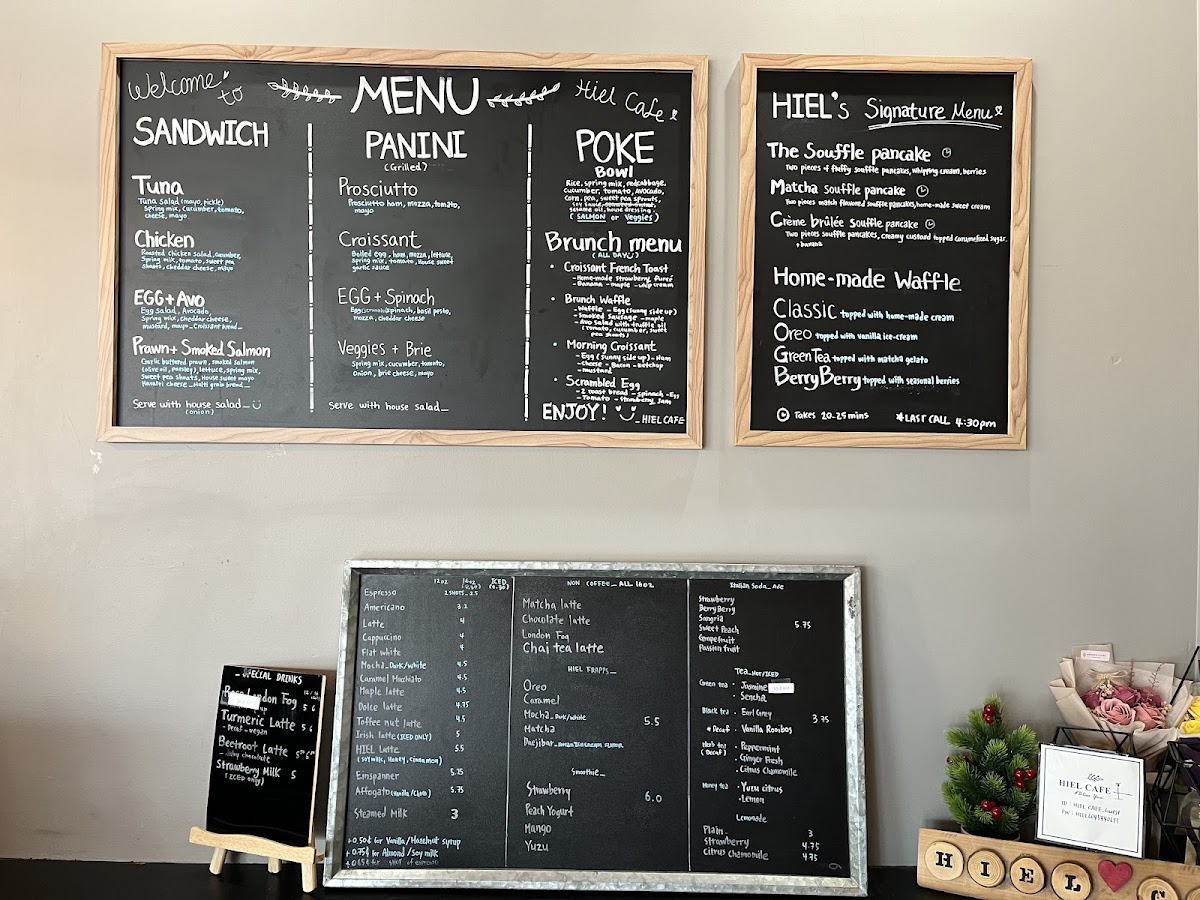 Welcome to
MENU
Hiel Cafe
SANDWICH
Tuna
Tuna salad (mayo, pickle)
Spring mix, cucumber, tomato,
cheese, mayo
Chicken
Roasted chicken salad, cucumber,
Spring mix, tomato, sweet pea
shoots, cheddar cheese, mayo
EGG+Avo
Egg salad, Avocado,
Spring mix, cheddar cheese,
mustard, mayo_Croissant bread_
Prawn+ Smoked Salmon
Garlic buttered prawn, smoked salmon
(olive oil, parsley), lettuce, spring mix,
sweet pea shoots, house sweet mayo
Havarti cheese_Multi grain bread_
Serve with house salad_
(onion)
PANINI
(Grilled)
Prosciutto
Prosciutto ham, mozza, tomato,
mayo
Croissant
Boiled egg, ham, mozza, lettuce,
spring mix, tomato, house sweet
garlic sauce
EGG + Spinach
Egg spinach, basil pesto,
mozza, cheddar cheese
Veggies + Brie
Spring mix, cucumber, tomato,
Onion, brie cheese, mayo
Serve with house salad_
POKE
Bowl
Rice, spring mix, redcabbage,
cucumber, tomato, Avocado,
corn, pea, sweet pea sprouts,
sesame oil, house dressing.
(SALMON or Veggies)
Brunch menu
(ALL DAY)
• Croissant French Toast
-Home-made strawberry
-Banana -maple -whip cream
• Brunch Waffle
-Waffle -Egg (sunny side up)
-Smoked Sausage -maple
-Avo salad with truffle oil
(tomato, cucumber, sweet
pea shoots)
• Morning Croissant
-Egg (sunny side up) -Ham
-cheese -Bacon -ketchup
-mustard
• Scrambled Egg
-2 toast bread -spinach -Egg
-Tomato -strawberry Jam
ENJOY! _HIEL CAFE
HIEL's Signature Menu
The Souffle pancake
Two pieces of fluffy souffle pancakes, whipping cream, berries
Matcha souffle pancake
Two pieces match flavored souffle pancakes, home-made sweet cream
Crème brûlée souffle pancake
Two pieces souffle pancakes, creamy custard topped caramelized sugar,
+ banana
Home-made Waffle
Classic topped with home-made cream
Oreo topped with vanilla ice-cream
Green Tea topped with matcha gelato
BerryBerry topped with seasonal berries
Takes 20-25 mins
*LAST CALL 4:30pm
_SPECIAL DRINKS
London Fog 5 6
Turmeric Latte 5 6
- Decaf - vegan
Beetroot Latte
Strawberry Milk 5
(ICED only)
12oz 16oz ICED
Espresso 2 SHOTS_2.5
Americano 3.2
Latte 4
Cappuccino 4
Flat white 4
Mocha_Dark/white 4.5
Caramel Macchiato 4.5
Maple latte 4.5
Dolce latte 4.75
Toffee nut latte 4.5
Irish latte (ICED ONLY) 5
HIEL Latte 5.5
(soymilk, Honey, Cinnamon)
Einspanner 5.75
Affogato 5.75
Steamed Milk 3
+0.50¢ for Vanilla/Hazelnut syrup
+0.75¢ for Almond/Soy milk
NON COFFEE_ALL 16oz
Matcha latte
Chocolate latte
London Fog
Chai tea latte
HIEL FRAPPS_
Oreo
Caramel
Mocha_Dark/white 5.5
Matcha
Smoothie_
Strawberry 6.0
Peach Yogurt
Mango
Yuzu
Italian Soda_Ade
Strawberry
BerryBerry
Sangria
Sweet Peach 5.75
Grapefruit
Passion fruit
Tea_HOT/ICED
Green tea • Jasmine
• Sencha
Black tea • Earl Grey 3.75
* Decaf • Vanilla Rooibos
Herb tea • Peppermint
(Decaf) • Ginger Fresh
• Citrus Chamomile
Honey tea • Yuzu citrus
• Lemon
Lemonade
Plain 3
Strawberry 4.75
Citrus chamomile 4.75
HIEL CAFE
HIEL